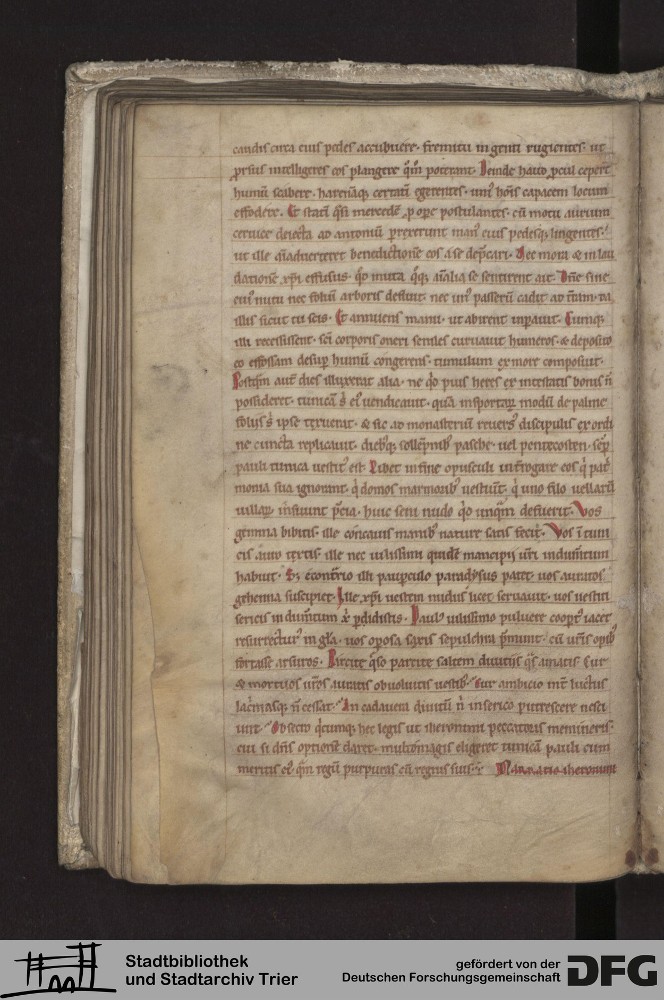 caudis circa eius pedes accubuere. fremitu ingenti rugientes. ut
prsus intelligeres eos plangere qm poterant. Deinde haut pcul ceper̄t
humū scabere. harenāq; certatī egerentes. uni hōis capacem locum
effodere. Et statī qsi mercedē p ope postulantes. cū motu aurium
ceruice deiecta ad antoniū prexerunt man eius pedesq; lingentes.
ut ille aīaduerteret benedictionē eos a se dep̄cari. Nec mora & in lau
dationē xp̄i effusus. qd muta qq; aīalia se sentirent ait. Dn̄e sine
cui' nutu nec foliū arboris defluit. nec un' passerū cadit ad t̄ram. da
illis sicut tu scis. Et annuens manu. ut abirent inpauit. Cumq;
illi recessissent. sc̄i corporis oneri seniles curuauit humeros. & deposito
eo effossam desup humū congerens. tumulum ex more composuit.
Postqm aut̄ dies illuxerat alia. ne qd pius heres ex intestatis bonis n̄
possideret. tunicā s̄ ei' uendicauit. quā in sportarū modū de palme
foliis s̄ ipse texuerat. & sic ad monasteriū reuers' discipulis ex ordi
ne cuncta replicauit. dieb'q; sollēpnib' pasche. uel pentecosten. sēp
pauli tunica uestit' est. Libet in fine opusculi int̄rogare eos q patⁱ
monia sua ignorant. q domos marmorib' uestiunt. q uno filo uillarū
insuunt p̄cia. huic seni nudo qd unqm defuerit. Vos
gemma bibitis. ille concauis manib' nature satis fecit. Vos ī tuni
cis auro textis. ille nec uilissimi quidē mancipii ur̄i indumentum
habuit. Sz econt̄rio illi paupculo paradysus patet. uos auratos
gehenna suscipiet. Ille xp̄i uestem nudus licet seruauit. uos uestiti
sericis indumentum xp̄i pdidistis. Paul' uilissimo puluere coopt' iacet
resurrectur' in gl̄a. uos oposa saxis sepulchra p̄munt. cū ur̄is opib'
arsuros. Parcite qso parcite saltem diuitiis qs amatis. Cur
& mortuos ur̄os auratis obuoluitis uestib'. Cur ambicio int̄ luctus
lac̄masq; n̄ cessat. An cadauera diuitū n̄ in serico putrescere nesci
unt. Obsecro qcumq; hec legis ut iheronimi peccatoris memineris.
cui si dn̄s optionē daret. multo magis eligeret tunicā pauli cum
meritis ei'. qm regū purpuras cū regnis suis. Narratio iheronimi
Stadtbibliothek
und Stadtarchiv Trier
gefördert von der
Deutschen Forschungsgemeinschaft
DFG